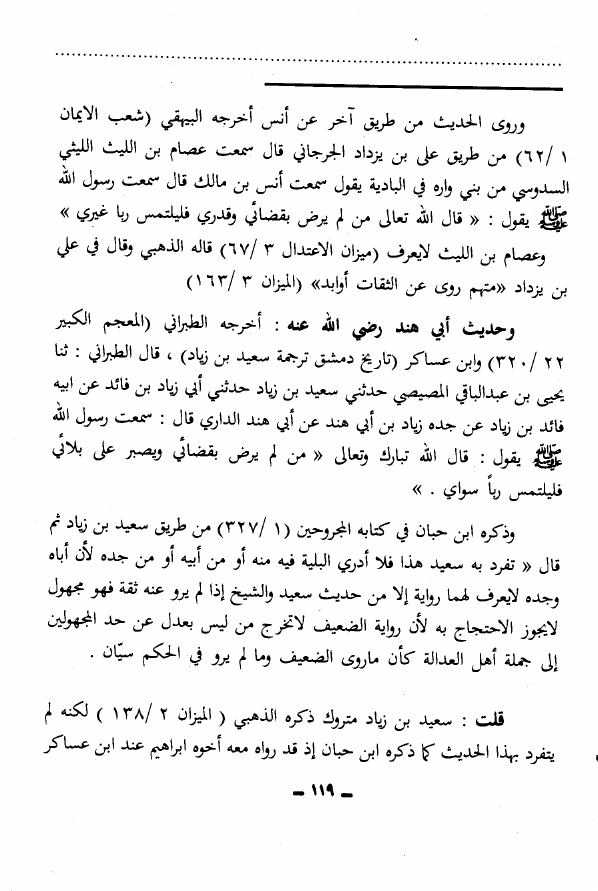 وروى الحديث من طريق آخر عن أنس أخرجه البيهقي (شعب الايمان
٦٢/١) من طريق على بن يزداد الجرجاني قال سمعت عصام بن الليث الليثي
السدوسي من بني واره في البادية يقول سمعت أنس بن مالك قال سمعت رسول الله
ﷺ يقول : « قال الله تعالى من لم يرض بقضائي وقدري فليلتمس ربا غيري »
وعصام بن الليث لايعرف (ميزان الاعتدال ٣ /٦٧) قاله الذهبي وقال في علي
بن يزداد «متهم روى عن الثقات أوابد» (الميزان ٣ /١٦٣)
وحديث أبي هند رضي الله عنه : أخرجه الطبراني (المعجم الكبير
٢٢ /٣٢٠) وابن عساكر (تاريخ دمشق ترجمة سعيد بن زياد) ، قال الطبراني : ثنا
يحيى بن عبدالباقي المصيصي حدثني سعيد بن زياد حدثني أبي زياد بن فائد عن ابيه
فائد بن زياد عن جده زياد بن أبي هند عن أبي هند الداري قال : سمعت رسول الله
ﷺ يقول : قال الله تبارك وتعالى « من لم يرض بقضائي ويصبر على بلائي
فليلتمس رباً سواي . »
وذكره ابن حبان في كتابه المجروحين (١ /٣٢٧) من طريق سعيد بن زياد ثم
قال « تفرد به سعيد هذا فلا أدري البلية فيه منه أو من أبيه أو من جده لأن أباه
وجده لايعرف لهما رواية إلا من حديث سعيد والشيخ إذا لم يرو عنه ثقة فهو مجهول
لايجوز الاحتجاج به لأن رواية الضعيف لاتخرج من ليس بعدل عن حد المجهولين
إلى جملة أهل العدالة كأن ماروى الضعيف وما لم يرو في الحكم سيّان .
قلت : سعيد بن زياد متروك ذكره الذهبي ( الميزان ٢ /١٣٨ ) لكنه لم
يتفرد بهذا الحديث كما ذكره ابن حبان إذ قد رواه معه أخوه ابراهيم عند ابن عساكر
– ١١٩ –